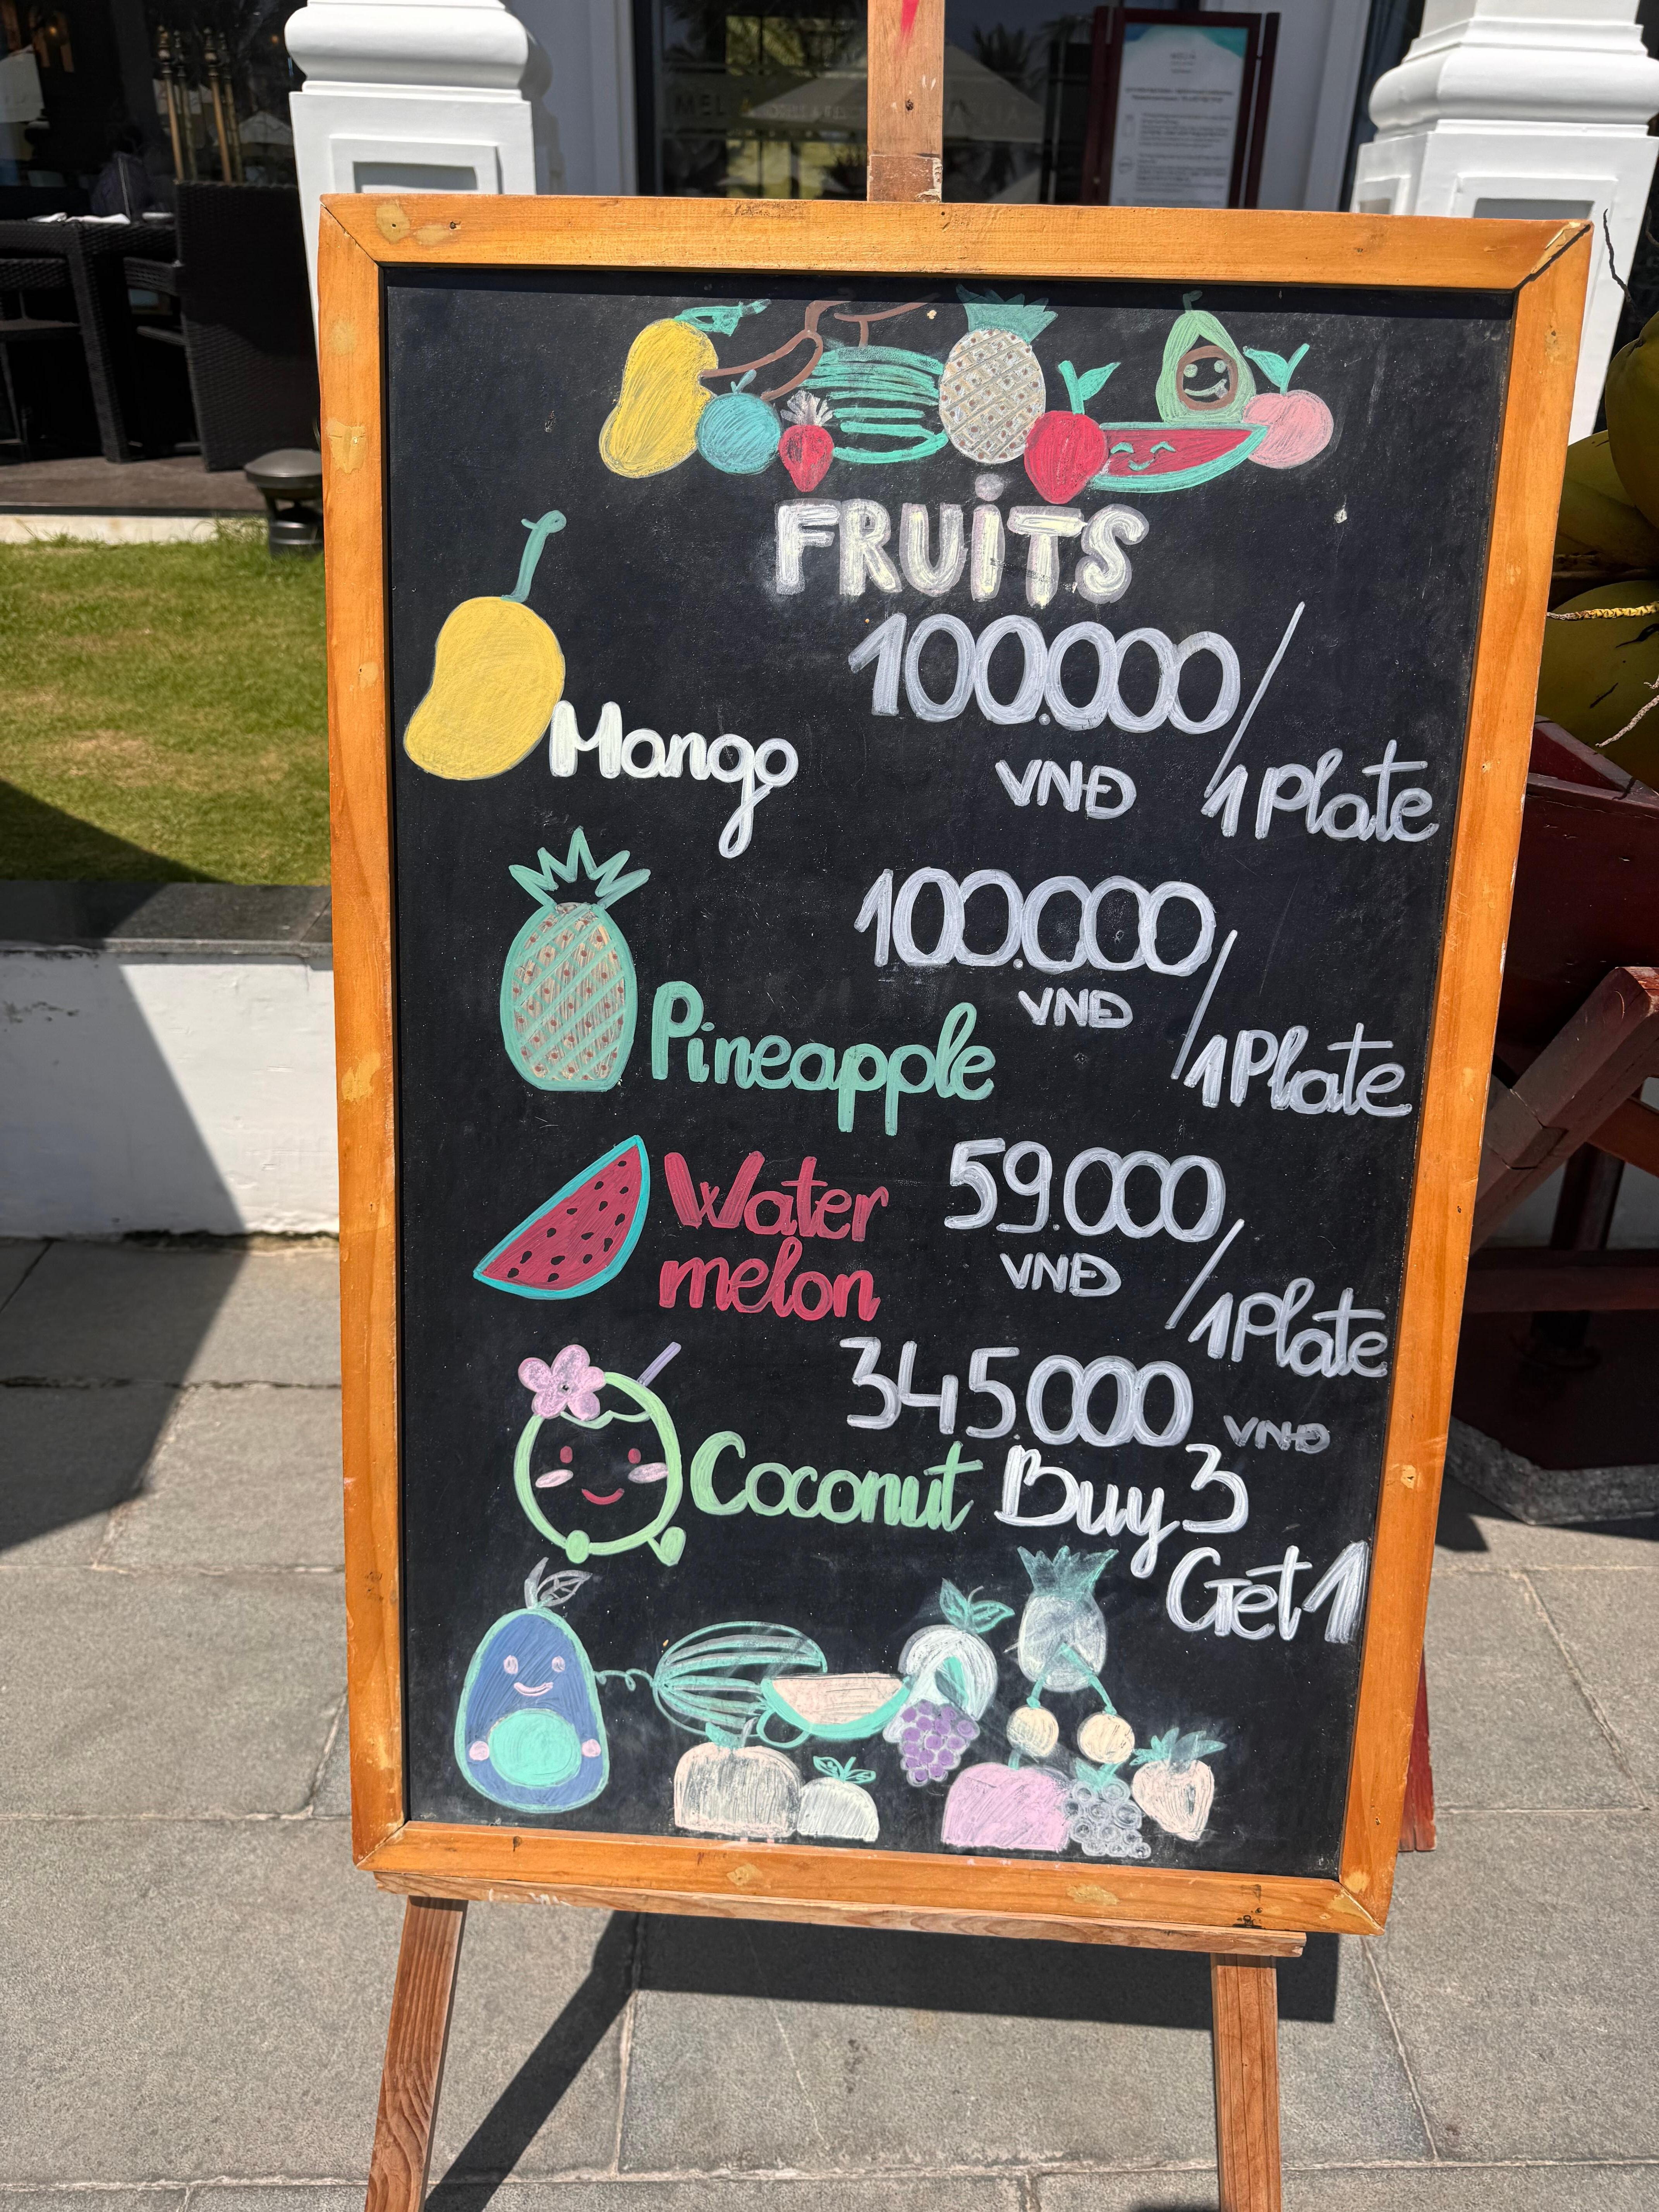 FRUiTS
100.000
Mango
VNĐ
/1 Plate
100.000
VNĐ
Pineapple
/1 Plate
Water
59.000
melon
VNĐ
/1 Plate
345.000 VNĐ
Coconut Buy 3
Get 1